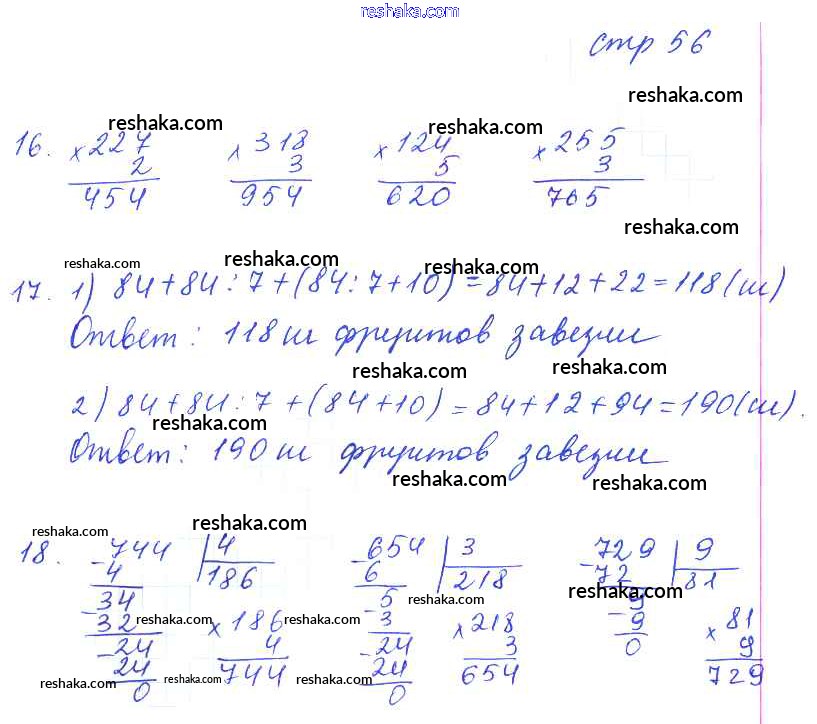 reshaka.com
стр 56
reshaka.com
reshaka.com reshaka.com
16. × 227 × 318 × 124 × 255
2 3 5 3
454 954 620 765
reshaka.com
reshaka.com reshaka.com reshaka.com
17. 1) 84+84:7+(84:7+10)=84+12+22=118(ш)
Ответ: 118 ш фруктов завезли
reshaka.com reshaka.com
2) 84+84:7+(84+10)=84+12+94=190(ш).
reshaka.com reshaka.com
Ответ: 190 ш фруктов завезли
reshaka.com reshaka.com
reshaka.com reshaka.com
18. -744 | 4 -654 | 3 -729 | 9
4 186 6 218 72 81
reshaka.com reshaka.com
-34 -5 -9
32 × 186 3 × 218 9 × 81
reshaka.com reshaka.com reshaka.com
-24 4 -24 3 0 9
24 744 24 654 729
0 0
reshaka.com reshaka.com reshaka.com reshaka.com